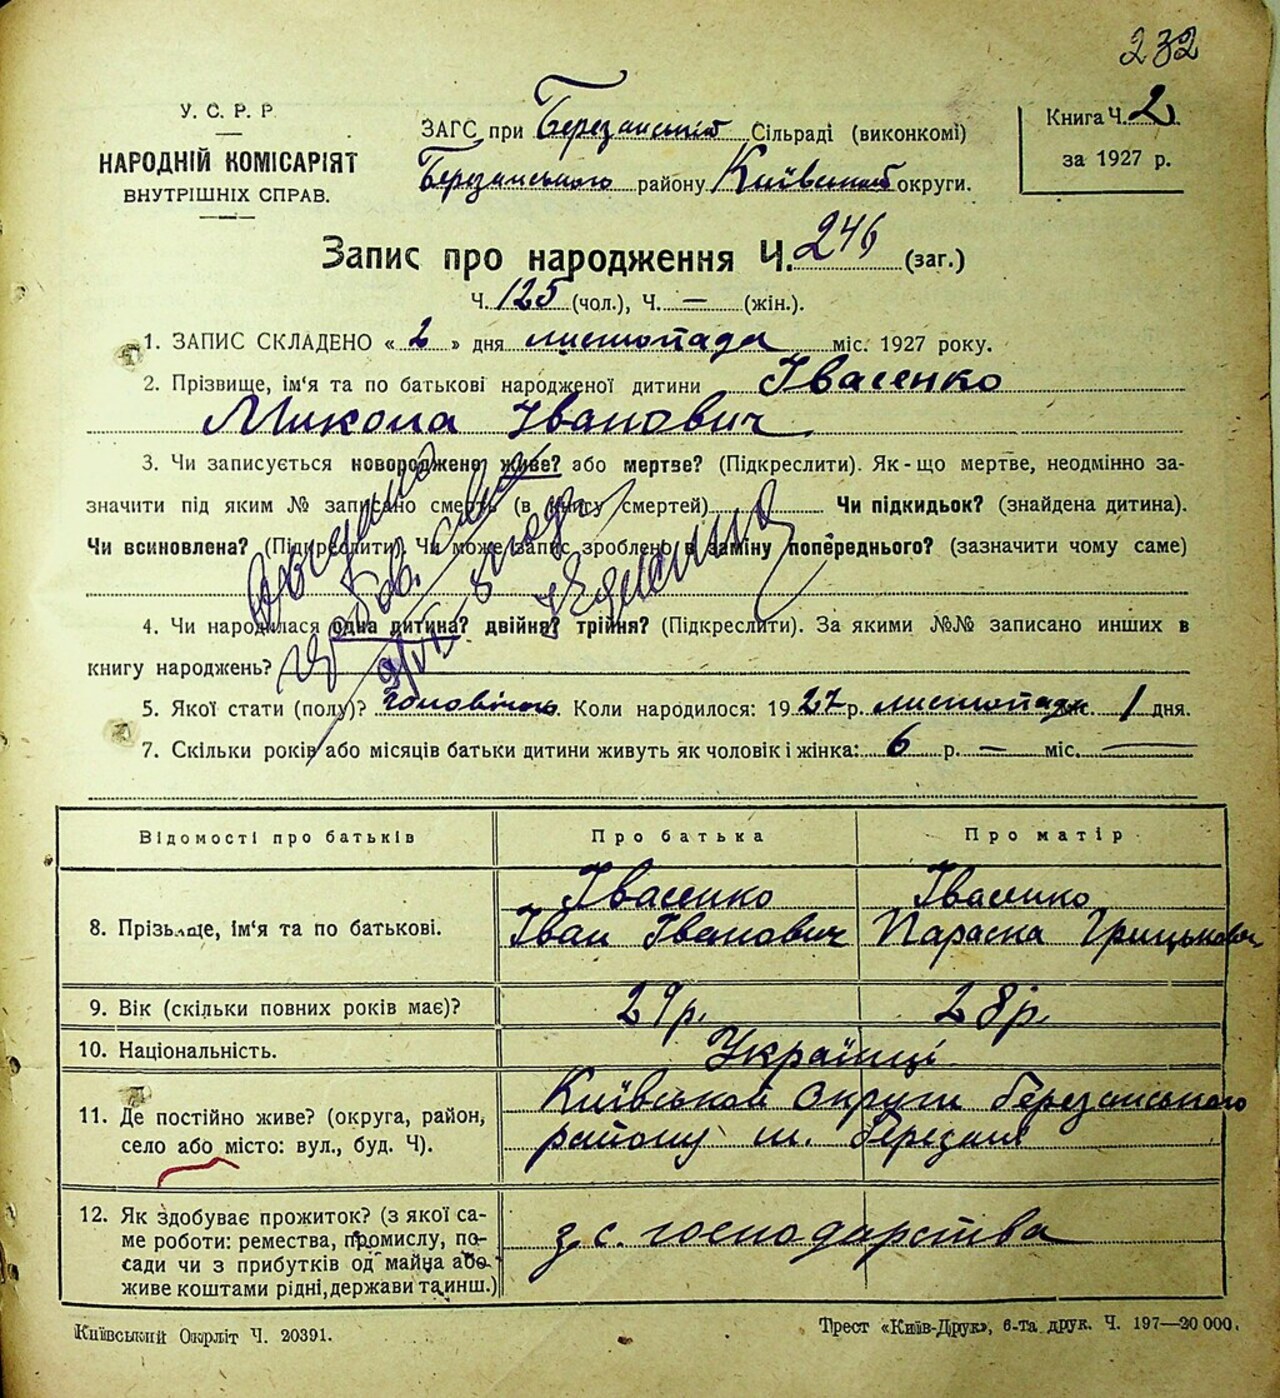 232
У. С. Р. Р.
НАРОДНІЙ КОМІСАРІЯТ
ВНУТРІШНІХ СПРАВ.
ЗАГС при Березанській Сільраді (виконкомі)
Березанського району Київської округи.
Книга Ч. 2.
за 1927 р.
Запис про народження Ч. 246 (заг.)
Ч. 125 (чол.), Ч. — (жін.).
1. ЗАПИС СКЛАДЕНО « 2 » дня листопада міс. 1927 року.
2. Прізвище, ім'я та по батькові народженої дитини Івасенко
Микола Іванович
3. Чи записується новороджено живе? або мертве? (Підкреслити). Як-що мертве, неодмінно за-
значити під яким № записано смерть (в книгу смертей) Чи підкидьок? (знайдена дитина).
Чи всиновлена? (Підкреслити). Чи може запис зроблено в заміну попереднього? (зазначити чому саме)
4. Чи народилася одна дитина? двійня? трійня? (Підкреслити). За якими №№ записано инших в
книгу народжень?
5. Якої стати (полу)? чоловічої. Коли народилося: 1927 р. листопада 1 дня.
7. Скільки років або місяців батьки дитини живуть як чоловік і жінка: 6 р. — міс. —
Відомості про батьків
Про батька
Про матір
8. Прізьвще, ім'я та по батькові.
Івасенко
Іван Іванович
Івасенко
Параска Грицьковна
9. Вік (скільки повних років має)?
29 р.
28 р.
10. Національність.
Українці
11. Де постійно живе? (округа, район,
село або місто: вул., буд. Ч).
Київської округи Березанського
району м. Березані
12. Як здобуває прожиток? (з якої са-
ме роботи: ремества, промислу, по-
сади чи з прибутків од майна або
живе коштами рідні, держави та инш.)
з с. господарства
Київський Окрліт Ч. 20391.
Трест «Київ-Друк», 6-та друк. Ч. 197—20 000.